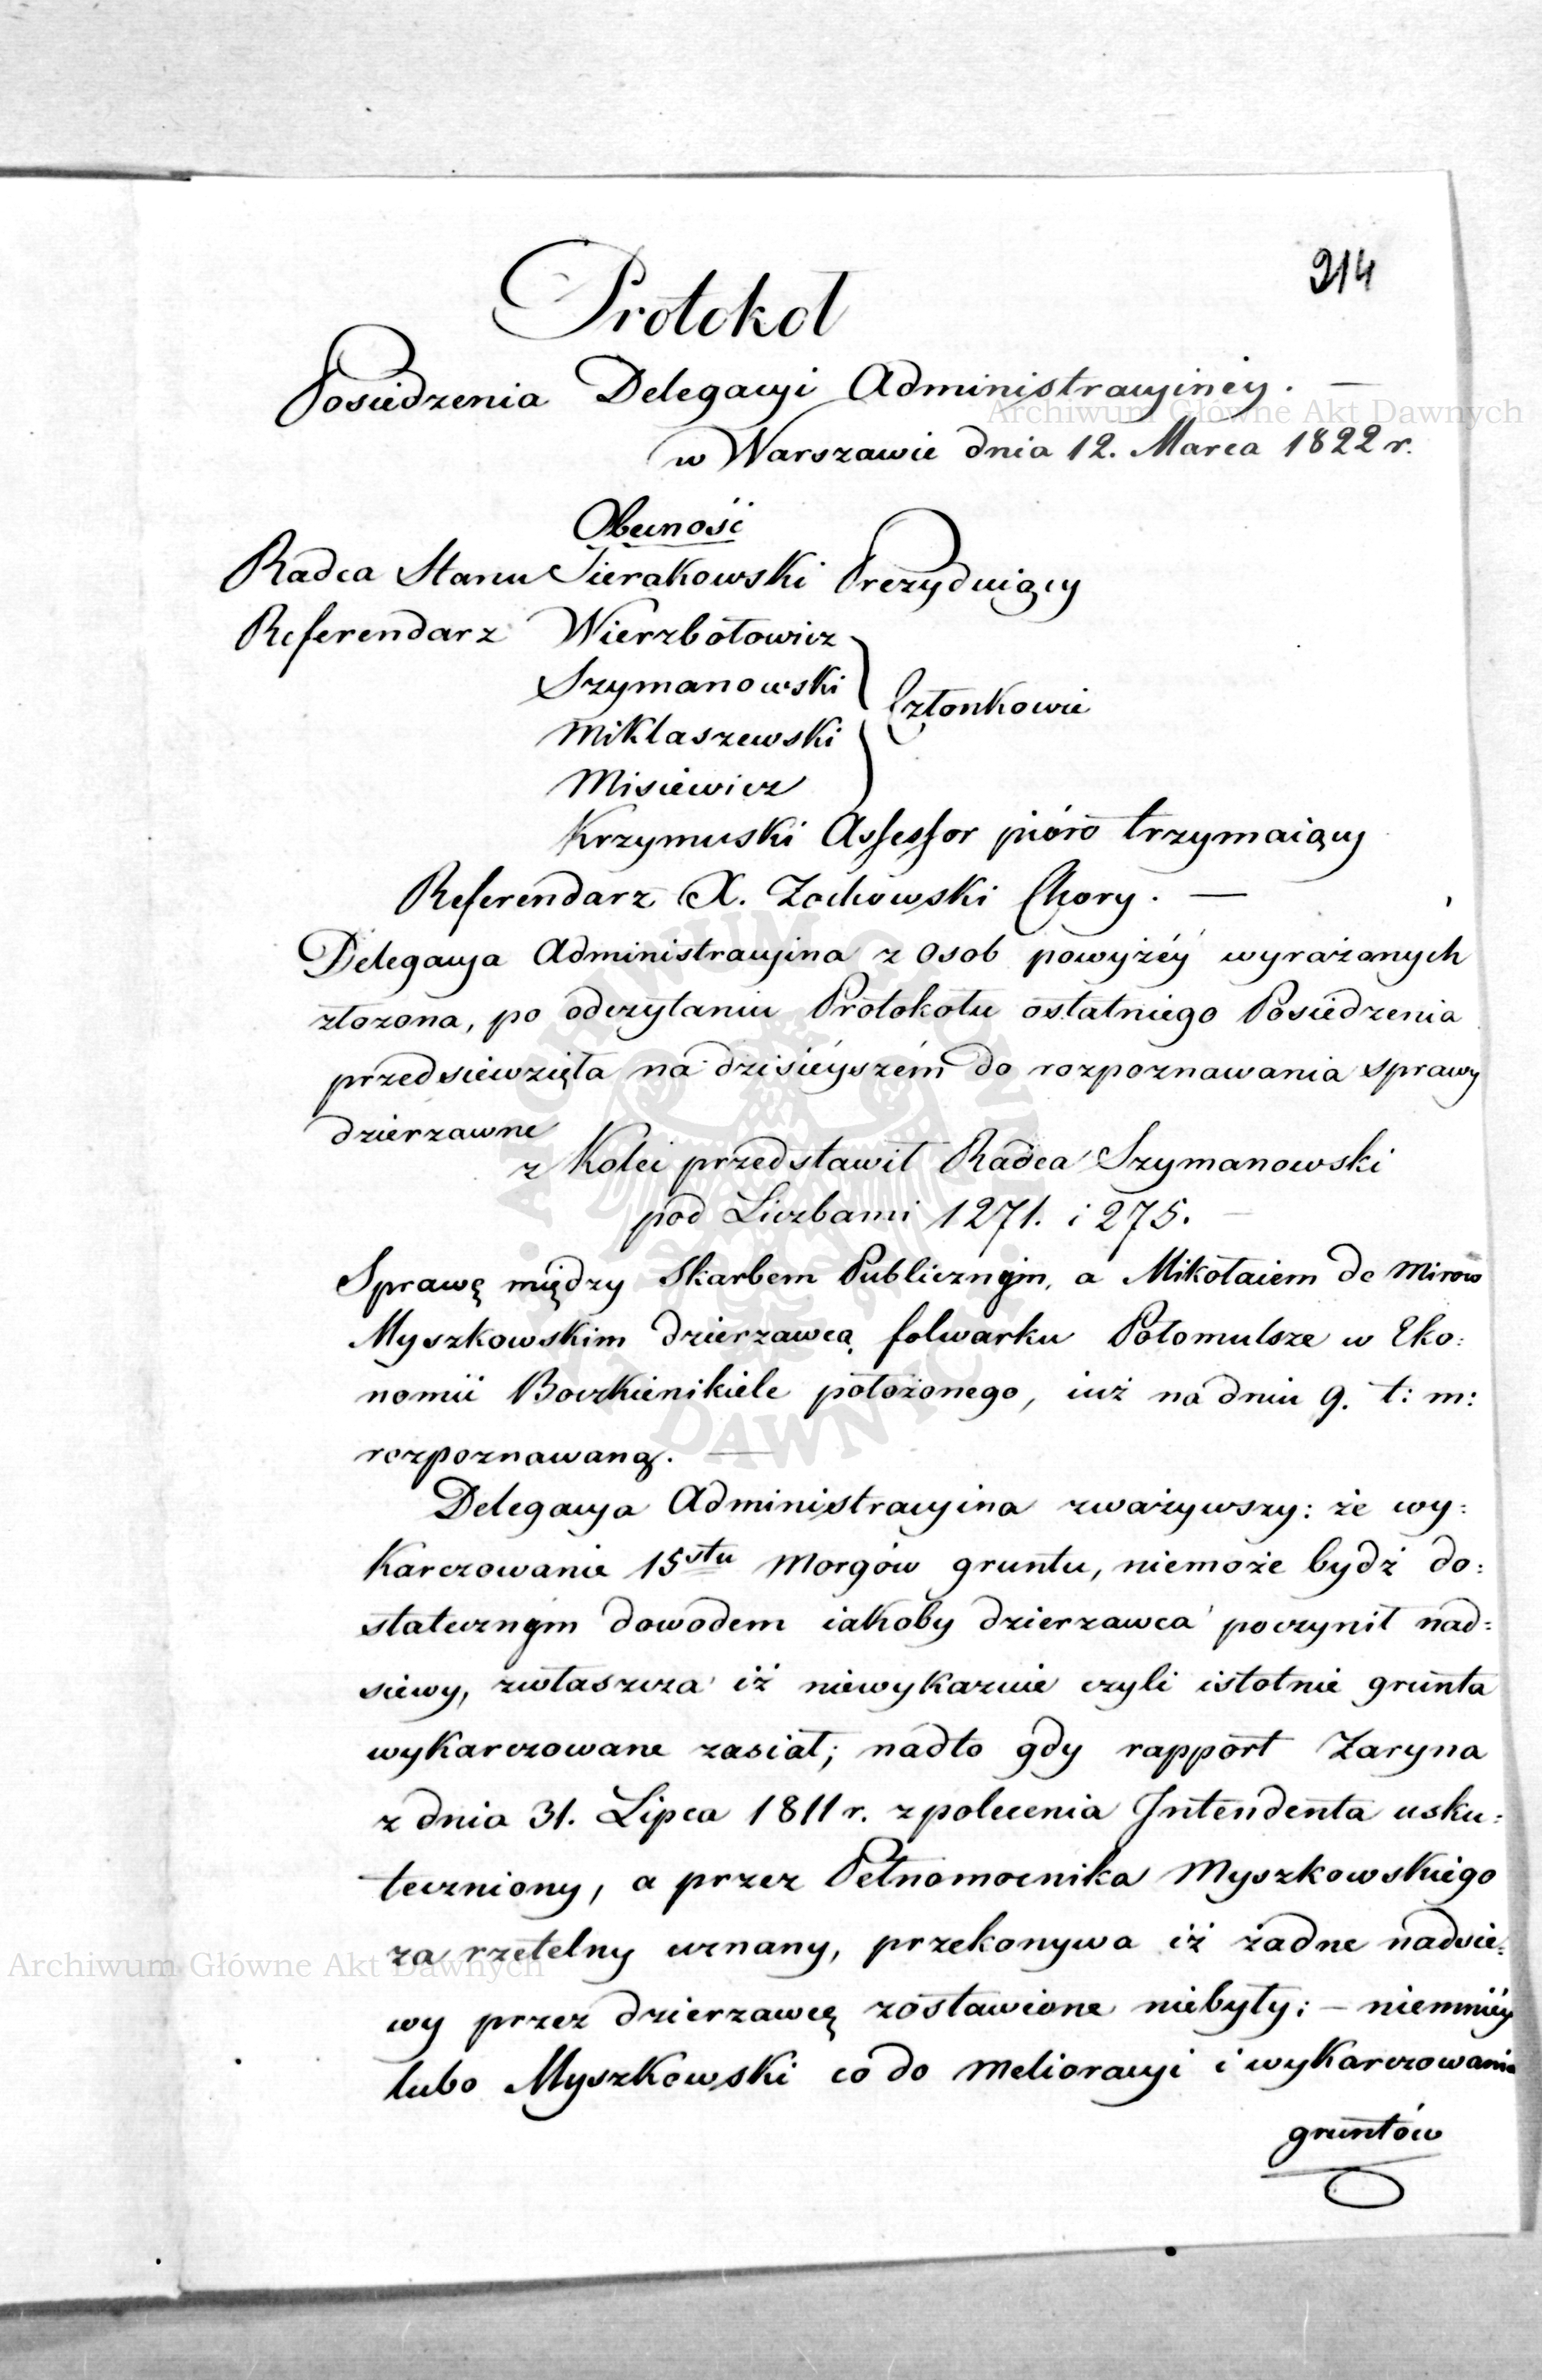 214
Protokoł
Posiedzenia Delegacyi Administracyinéy. —
w Warszawie dnia 12. Marca 1822 r.
Obecność
Radca Stanu Sierakowski Prezyduiący
Referendarz Wierzbołowicz
Szymanowski
Miklaszewski
Członkowie
Misiewicz
Krzymuski Assessor pióro trzymaiący
Referendarz X. Zochowski Chory. —
Delegacya Administracyina z osob powyżéy wyrażanych
złozona, po odczytaniu Protokołu ostatniego Posiedzenia
przedsiewzięła na dzisiéyszém do rozpoznawania sprawy
dzierzawne
z Kolei przedstawił Radca Szymanowski
pod Liczbami 1271. i 275. —
Sprawę między Skarbem Publicznym, a Mikołaiem de Mirow
Myszkowskim dzierzawcą folwarku Połomulsze w Eko:
nomii Boczkienikiele położonego, iuż na dniu 9. t: m:
rozpoznawaną. —
Delegacya Administracyina zważywszy: że wy:
karczowanie 15stu Morgów gruntu, niemoże bydź do:
statecznym dowodem iakoby dzierzawca poczynił nad:
siewy, zwłaszcza iż niewykazuie czyli istotnie grunta
wykarczowane zasiał; nadto gdy rapport Zaryna
z dnia 31. Lipca 1811 r. z polecenia Intendenta usku:
teczniony, a przez Pełnomocnika Myszkowskiego
za rzetelny uznany, przekonywa iż żadne nadsie:
wy przez dzierzawcę zostawione niebyły; — niemniéy
lubo Myszkowski co do Melioracyi i wykarczowania
gruntów
Archiwum Główne Akt Dawnych
Archiwum Główne Akt Dawnych